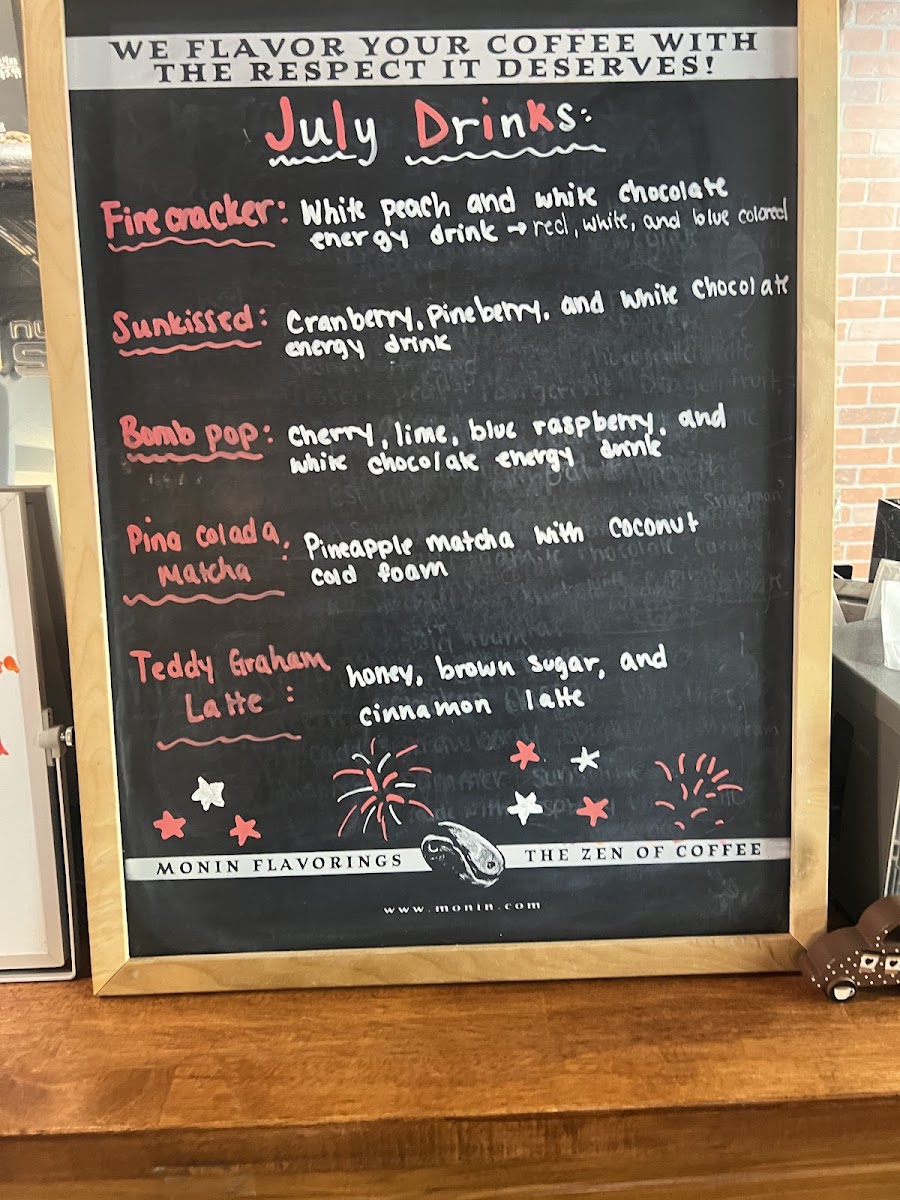 WE FLAVOR YOUR COFFEE WITH
THE RESPECT IT DESERVES!
July Drinks:
Firecracker: White peach and white chocolate
energy drink → red, white, and blue colored
Sunkissed: Cranberry, pineberry, and white chocolate
energy drink
Bomb pop: cherry, lime, blue raspberry, and
white chocolate energy drink
Pina colada Matcha: Pineapple matcha with coconut
cold foam
Teddy Graham Latte: honey, brown sugar, and
cinnamon latte
MONIN FLAVORINGS THE ZEN OF COFFEE
www.monin.com